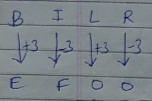 B I L R
+3 -3 +3 -3
E F O O